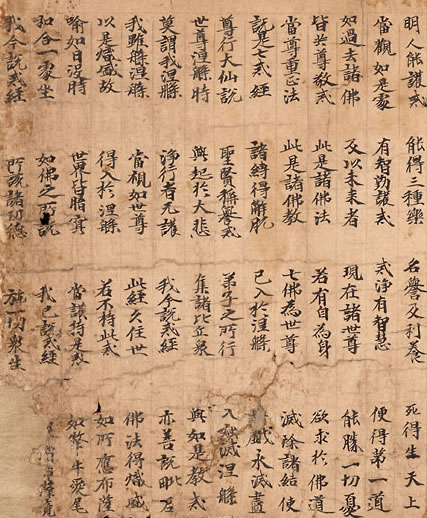 明人能護戒 能得三種樂 名譽及利養 死得生天上
當觀如是處 有智勤護戒 戒淨有智慧 便得第一道
如過去諸佛 及以未來者 現在諸世尊 能勝一切憂
皆共尊敬戒 此是諸佛法 若有自為身 欲求於佛道
當尊重正法 此是諸佛教 七佛為世尊 滅除諸結使
說是七戒經 諸縛得解脫 已入於涅槃 戲永滅盡
尊行大仙說 聖賢稱譽戒 弟子之所行 入寂滅涅槃
世尊涅槃時 興起於大悲 集諸比丘眾 與如是教戒
莫謂我涅槃 淨行者无護 我今說戒經 亦善說毗尼
我雖涅槃 當視如世尊 此經久住世 佛法得熾盛
以是熾盛故 得入於涅槃 若不持此戒 如所應布薩
喻如日沒時 世界皆闇冥 當護持是戒 如犛牛愛尾
和合一處坐 如佛之所說 我已說戒經 僧布薩竟
我今說戒經 所說諸功德 施一切眾生